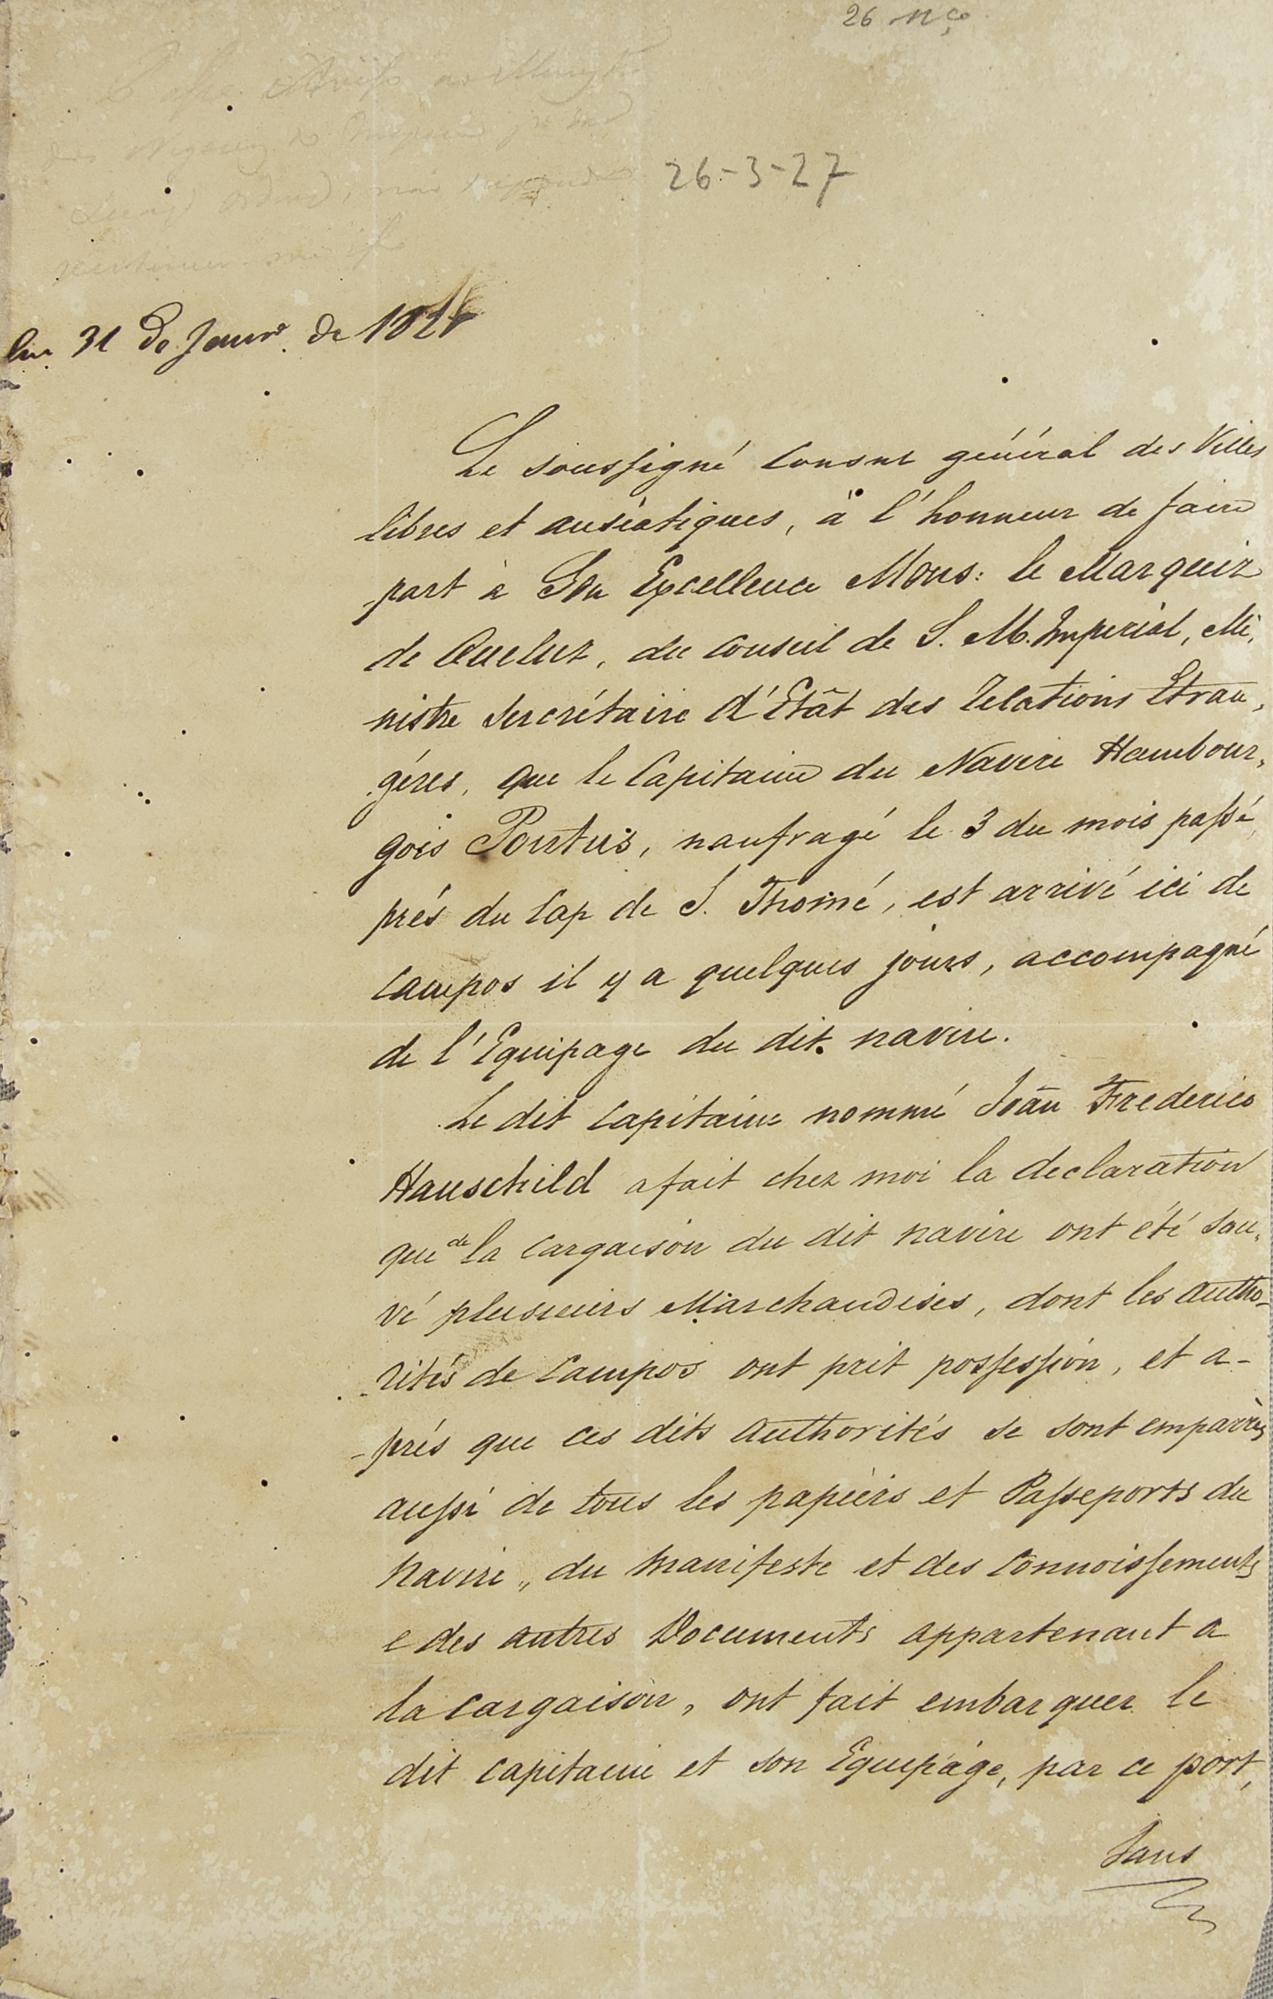 26
26-3-27
31 de Janro de 182
Le soussigné Consul général des Villes
libres et anséatiques, à l'honneur de faire
part à Son Excellence Mons: le Marquiz
de Queluz, du Conseil de S. M. Imperial, Mi,
nistre Sercrétaire d'Etât des Relations Etran,
géres, que le Capitaine du Navire Hambour,
gois Pontus, naufragé le 3 du mois passé
prés du Cap de S. Thomé, est arrivé ici de
Campos il y a quelques jours, accompagné
de l'Equipage du dit navire.
Le dit Capitaine nommé Joãn Frederico
Hauschild a fait chez moi la declaration
que de la Cargaison du dit Navire ont été sau,
vé plusieurs Marchandises, dont les Autho-
rités de Campos ont prit possession, et a-
-prés que ces dits Authorités se sont emparrés
aussi de tous les papiers et Passeports du
Navire, du Manifeste et des Connoissements
e des autres Documents appartenant a
la Cargaison, ont fait embarquer le
dit Capitaine et son Equipáge, par ce port,
Sans